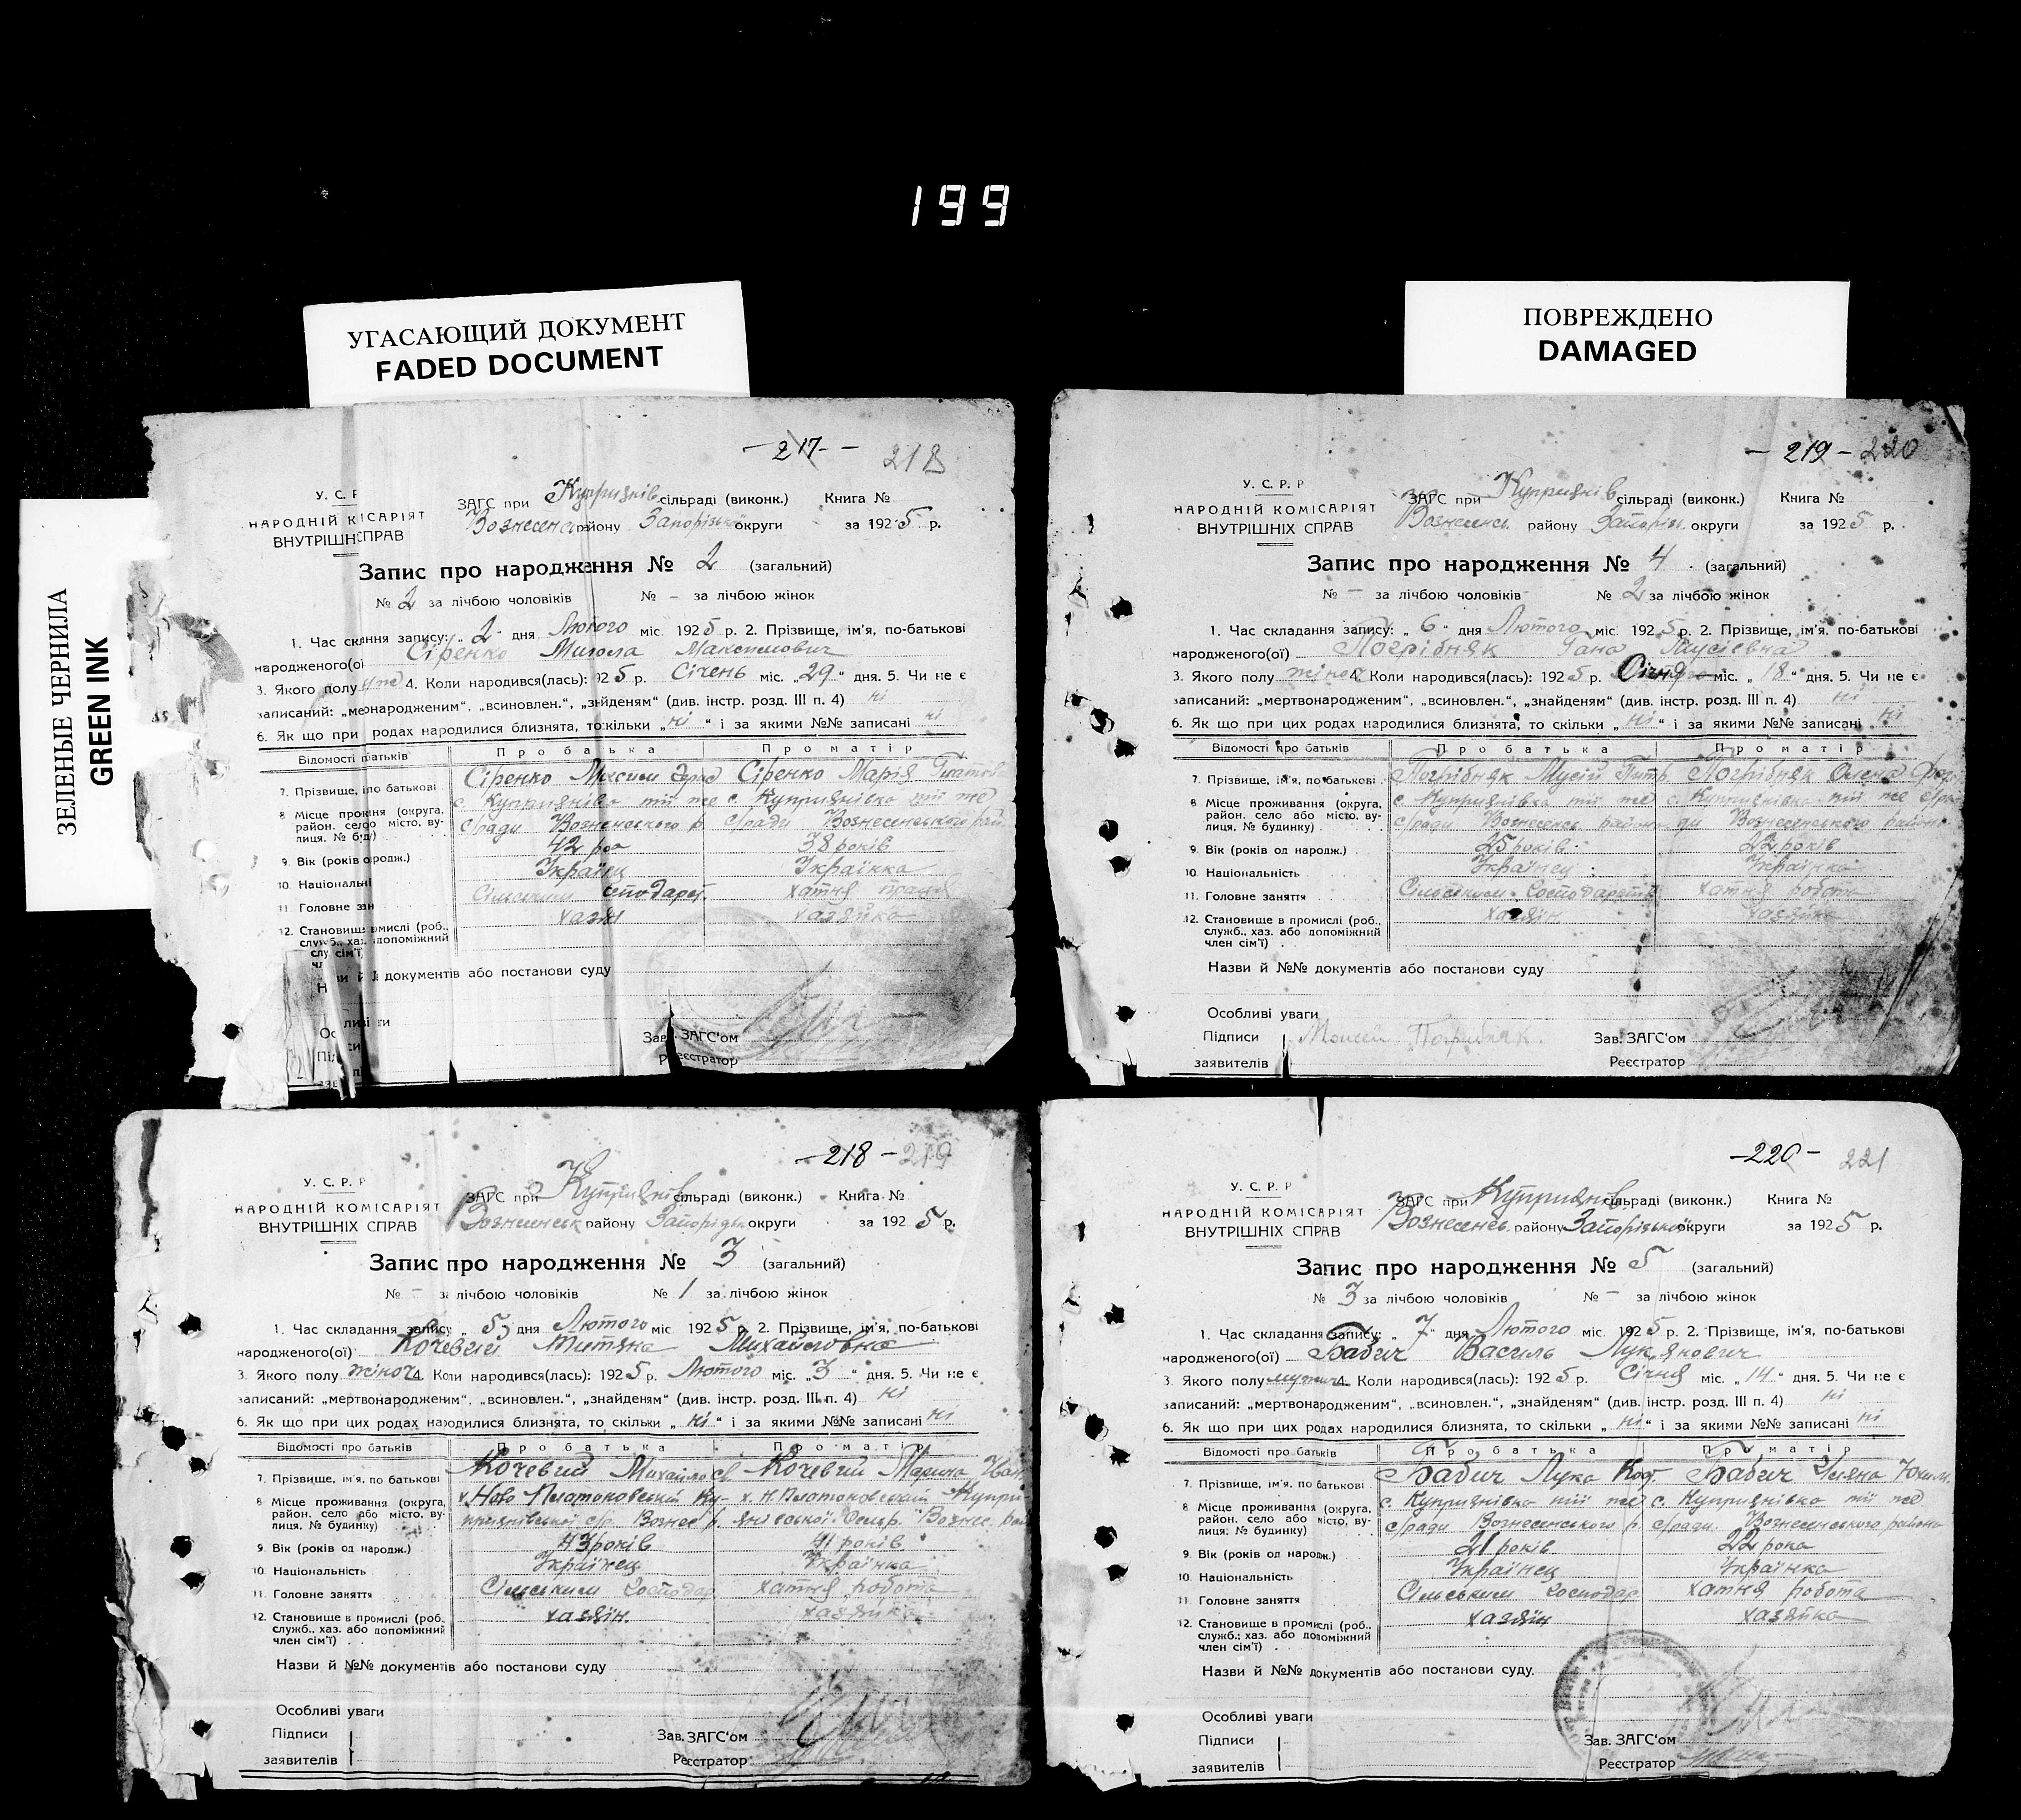 199
УГАСАЮЩИЙ ДОКУМЕНТ
FADED DOCUMENT
ПОВРЕЖДЕНО
DAMAGED
ЗЕЛЕНЫЕ ЧЕРНИЛА
GREEN INK
-217- 218
У. С. Р
ЗАГС при Куприянів сільраді (виконк.) Книга №
НАРОДНІЙ К ІСАРІЯТ
ВНУТРІШН СПРАВ
району округи за 1925 р.
Запис про народження № 2 (загальний)
№ 2 за лічбою чоловіків № - за лічбою жінок
1. Час складання запису: „2" дня Лютого міс. 1925 р. 2. Прізвище, ім'я, по-батькові
народженого(ої Сіренко Микола Максимович
3. Якого полу 4. Коли народився(лась): 925 р. Січень міс. „29" дня. 5. Чи не є
записаний: „ме народженим", „всиновлен.", „знайденям" (див. інстр. розд. III п. 4) ні
6. Як що при родах народилися близнята, то скільки „ні" і за якими №№ записані ні
Відомості батьків Про батька Про матір
7. Прізвище, по батькові Сіренко Максим Сіренко Марія
8 Місце прож ня (округа, с. Куприянівка тії же с. Куприянівка тії же
район. село або місто, ву-
лиця, № буд) с/ради Вознесенського р. с/ради Вознесенського рай
9. Вік (років од народж.) 42 38 років
10. Національні Українец Українка
11. Головне зан хатня праця
12. Становищ омислі (роб., хазяїн хазяйка
служб., хаз. допоміжний
член сім'ї
документів або постанови суду
Зав. ЗАГС'ом
Реєстратор
-219- 220
У. С. Р Р
ЗАГС при Куприянів сільраді (виконк.) Книга №
НАРОДНІЙ КОМІСАРІЯТ
ВНУТРІШНІХ СПРАВ
Вознесенсь. району Запоріз. округи за 1925 р.
Запис про народження № 4 (загальний)
№ - за лічбою чоловіків № 2 за лічбою жінок
1. Час складання запису: „6" дня Лютого міс. 1925 р. 2. Прізвище, ім'я, по-батькові
народженого(ої) Погрібняк Гана Мусіевна
3. Якого полу жіноч 4. Коли народився(лась): 1925 р. Січня міс. „18" дня. 5. Чи не є
записаний: „мертвонародженим", „всиновлен.", „знайденям" (див. інстр. розд. III п. 4) ні
6. Як що при цих родах народилися близнята, то скільки „ні" і за якими №№ записані ні
Відомості про батьків Про батька Про матір
7. Прізвище, ім'я, по-батькові Погрібняк Мусій Погрібняк Олена
8 Місце проживання (округа, с. Куприянівка тії же с. Куприянівка тії же с/ра-
район. село або місто, ву-
лиця, № будинку) с/ради Вознесенсь району ди Вознесенського району
9. Вік (років од народж.) 25 років 22 років
10. Національність Українец Українка
11. Головне заняття Сільським господарств хатня робота
12. Становище в промислі (роб., хазяїн хазяйка
служб., хаз. або допоміжний
член сім'ї)
Назви й №№ документів або постанови суду
Особливі уваги
Підписи Зав. ЗАГС'ом
заявителів Реєстратор
-218- 219
У. С. Р. Р
ЗАГС при Куприянів сільраді (виконк.) Книга №
НАРОДНІЙ КОМІСАРІЯТ
ВНУТРІШНІХ СПРАВ
Вознесенськ району округи за 1925 р.
Запис про народження № 3 (загальний)
№ - за лічбою чоловіків № 1 за лічбою жінок
1. Час складання запису „5" дня Лютого міс 1925 р. 2. Прізвище, ім'я, по-батькові
народженого(ої) Кочевий Титяна Михайловна
3. Якого полу жіноч 4. Коли народився(лась): 1925 р. Лютого міс. „3" дня. 5. Чи не є
записаний: „мертвонародженим", „всиновлен.", „знайденям" (див. інстр. розд. III п. 4) ні
6. Як що при цих родах народилися близнята, то скільки „ні" і за якими №№ записані ні
Відомості про батьків Про батька Про матір
7. Прізвище, ім'я, по батькові Кочевий Михайло Кочевий Марина
8 Місце проживання (округа, х. Ново Платоновський Ку- х. Н. Платоновський
район. село або місто, ву-
лиця, № будинку) приянівської с/р. Вознес р.
9. Вік (років од народж.) 43 років 41 років
10. Національність Українец Українка
11. Головне заняття Сільським господар хатня робота
12. Становище в промислі (роб., хазяїн. хазяйка
служб., хаз. або допоміжний
член сім'ї)
Назви й №№ документів або постанови суду
Особливі уваги
Підписи Зав. ЗАГС'ом
заявителів Реєстратор
-220- 221
У. С. Р. Р
ЗАГС при Куприянів сільраді (виконк.) Книга №
НАРОДНІЙ КОМІСАРІЯТ
ВНУТРІШНІХ СПРАВ
Вознесенсь. району Запорізької округи за 1925 р.
Запис про народження № 5 (загальний)
№ 3 за лічбою чоловіків № - за лічбою жінок
1. Час складання запису: „7" дня Лютого міс. 1925 р. 2. Прізвище, ім'я, по-батькові
народженого(ої) Бабич Василь Лукянович
3. Якого полу мужич 4. Коли народився(лась): 1925 р. Січня міс. „14" дня. 5. Чи не є
записаний: „мертвонародженим", „всиновлен.", „знайденям" (див. інстр. розд. III п. 4) ні
6. Як що при цих родах народилися близнята, то скільки „ні" і за якими №№ записані ні
Відомості про батьків Про батька Про матір
7. Прізвище, ім'я, по батькові Бабич Лука Бабич Уляна Юхим.
8 Місце проживання (округа, с. Куприянівка тії же с. Куприянівка тії же
район. село або місто, ву-
лиця, № будинку) с/ради Вознесенського р. с/ради. Вознесенського району
9. Вік (років од народж.) 21 років 22 рока
10. Національність Українец Українка
11. Головне заняття Сільським господар хатня робота
12. Становище в промислі (роб., хазяїн хазяйка
служб.; хаз. або допоміжний
член сім'ї)
Назви й №№ документів або постанови суду.
Особливі уваги
Підписи Зав. ЗАГС'ом
заявителів Реєстратор